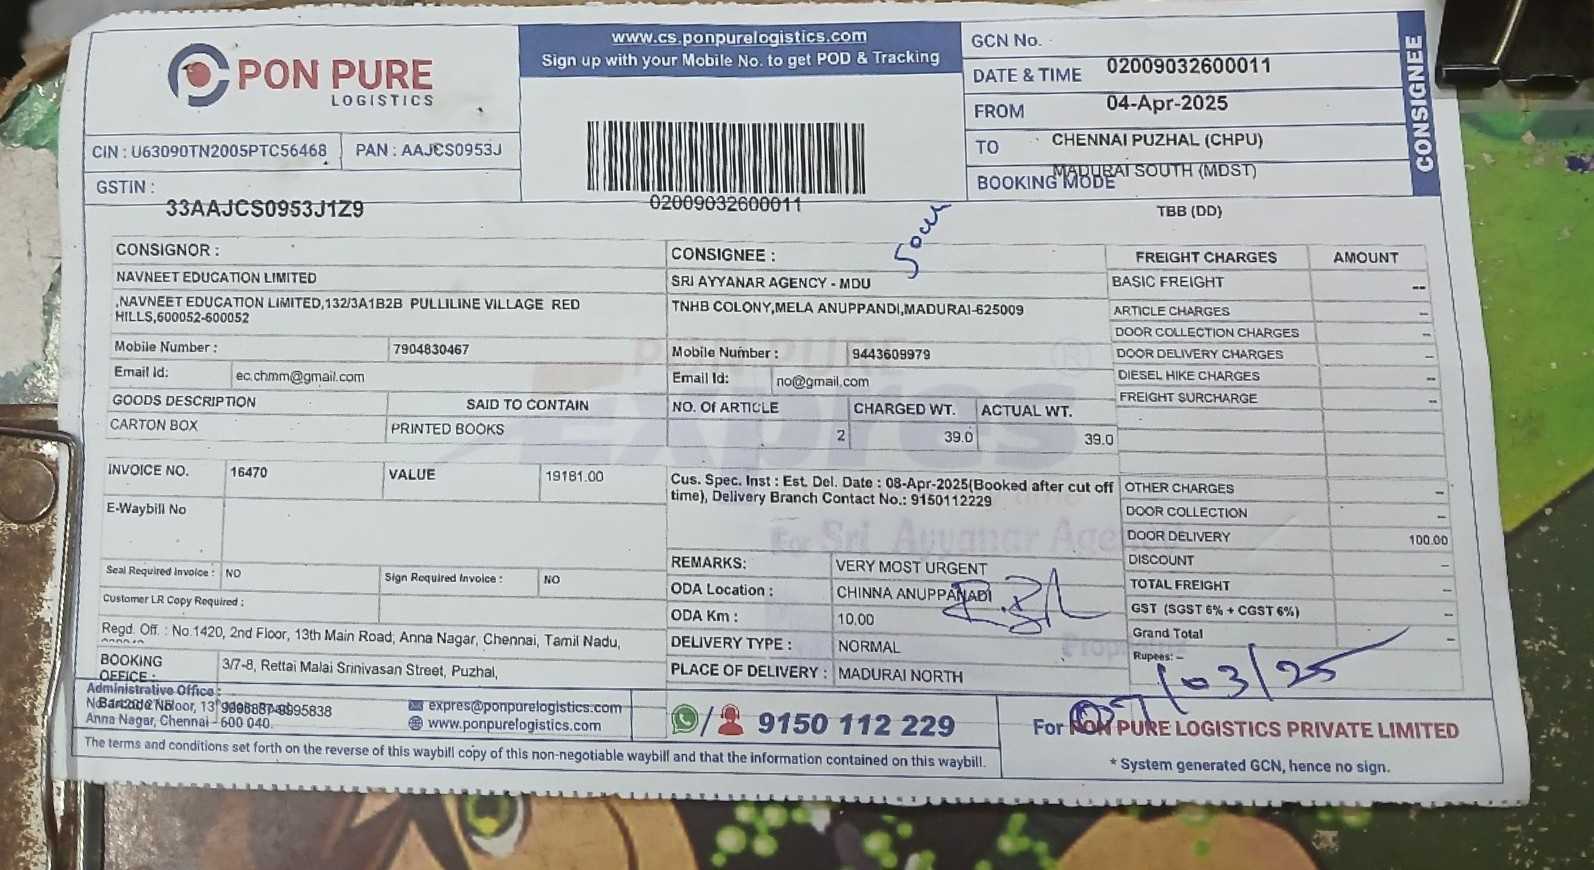 PON PURE
LOGISTICS
www.cs.ponpurelogistics.com
Sign up with your Mobile No. to get POD & Tracking
CIN : U63090TN2005PTC56468 PAN : AAJCS0953J
GSTIN :
33AAJCS0953J1Z9
02009032600011
GCN No.
DATE & TIME 02009032600011
FROM 04-Apr-2025
TO CHENNAI PUZHAL (CHPU)
BOOKING MODE MADURAI SOUTH (MDST)
TBB (DD)
CONSIGNEE
CONSIGNOR :
NAVNEET EDUCATION LIMITED
,NAVNEET EDUCATION LIMITED,132/3A1B2B PULLILINE VILLAGE RED
HILLS,600052-600052
Mobile Number : 7904830467
Email Id: ec.chmm@gmail.com
GOODS DESCRIPTION SAID TO CONTAIN
CARTON BOX PRINTED BOOKS
INVOICE NO. 16470 VALUE 19181.00
E-Waybill No
Seal Required Invoice : NO Sign Required Invoice : NO
Customer LR Copy Required :
Regd. Off. : No.1420, 2nd Floor, 13th Main Road, Anna Nagar, Chennai, Tamil Nadu,
BOOKING
OFFICE :
3/7-8, Rettai Malai Srinivasan Street, Puzhal,
CONSIGNEE :
SRI AYYANAR AGENCY - MDU
TNHB COLONY,MELA ANUPPANDI,MADURAI-625009
Mobile Number : 9443609979
Email Id: no@gmail.com
NO. Of ARTICLE CHARGED WT. ACTUAL WT.
2 39.0 39.0
Cus. Spec. Inst : Est. Del. Date : 08-Apr-2025(Booked after cut off
time), Delivery Branch Contact No.: 9150112229
For Sri Ayyanar Agency
REMARKS: VERY MOST URGENT
ODA Location : CHINNA ANUPPANADI
ODA Km : 10.00
DELIVERY TYPE : NORMAL
PLACE OF DELIVERY : MADURAI NORTH
FREIGHT CHARGES AMOUNT
BASIC FREIGHT --
ARTICLE CHARGES --
DOOR COLLECTION CHARGES --
DOOR DELIVERY CHARGES --
DIESEL HIKE CHARGES --
FREIGHT SURCHARGE --
OTHER CHARGES --
DOOR COLLECTION --
DOOR DELIVERY 100.00
DISCOUNT --
TOTAL FREIGHT --
GST (SGST 6% + CGST 6%) --
Grand Total --
Rupees: --
/03/25
Administrative Office :
Anna Nagar, Chennai - 600 040.
expres@ponpurelogistics.com
www.ponpurelogistics.com
9150 112 229
For PON PURE LOGISTICS PRIVATE LIMITED
* System generated GCN, hence no sign.
The terms and conditions set forth on the reverse of this waybill copy of this non-negotiable waybill and that the information contained on this waybill.